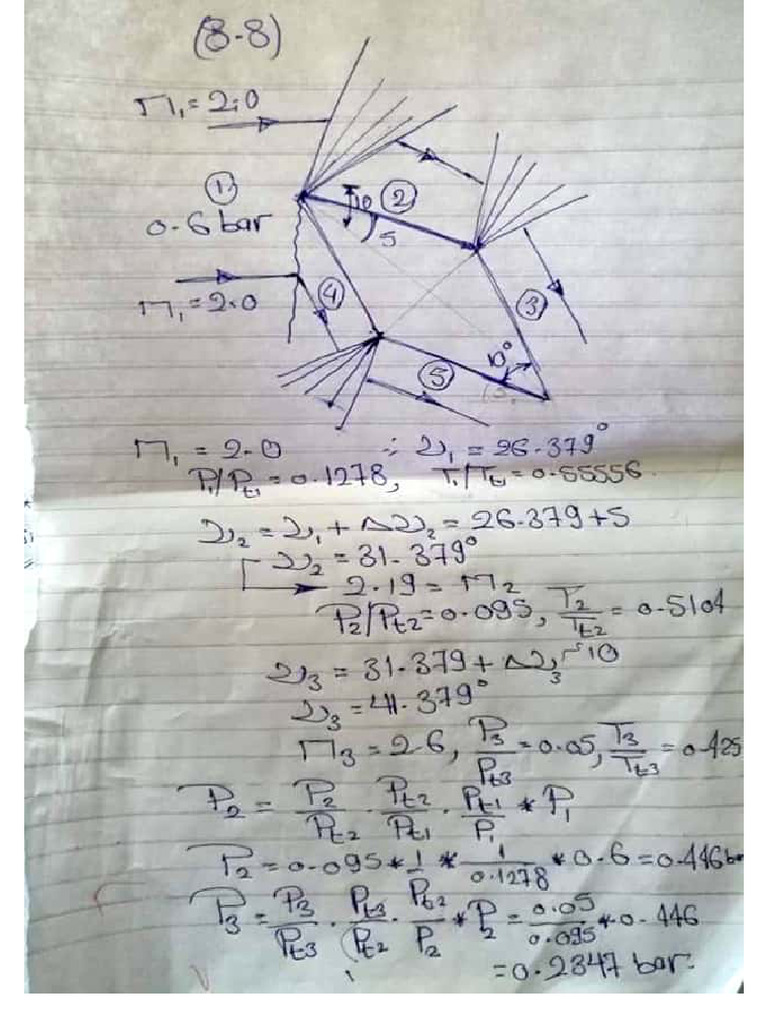 (8-8)
M₁ = 2.0
①
②
10
5
0.6 bar
④
M₁ = 2.0
③
10°
⑤
M₁ = 2.0 ∴ ν₁ = 26.379°
P₁/Pt₁ = 0.1278, T₁/Tt = 0.55556
ν₂ = ν₁ + Δν₂ = 26.379+5
ν₂ = 31.379°
2.19 = M₂
P₂/Pt₂ = 0.095, T₂/Tt₂ = 0.5104
ν₃ = 31.379 + Δν₃ 10
ν₃ = 41.379°
M₃ = 2.6, P₃/Pt₃ = 0.05, T₃/Tt₃ = 0.425
P₂ = P₂/Pt₂ . Pt₂/Pt₁ . Pt₁/P₁ * P₁
P₂ = 0.095 * 1 * 1/0.1278 * 0.6 = 0.446 bar
P₃ = P₃/Pt₃ . Pt₃/Pt₂ . Pt₂/P₂ * P₂ = 0.05/0.095 * 0.446
= 0.2347 bar.